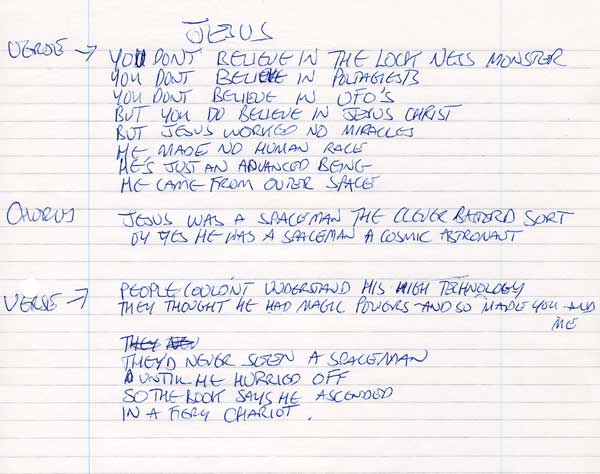 JESUS
VERSE → YOU DONT BELIEVE IN THE LOCK NESS MONSTER
YOU DONT BELIEVE IN POLTAGIESTS
YOU DONT BELIEVE IN UFO'S
BUT YOU DO BELIEVE IN JESUS CHRIST
BUT JESUS WORKED NO MIRACLES
HE MADE NO HUMAN RACE
HE'S JUST AN ADVANCED BEING
HE CAME FROM OUTER SPACE
CHORUS JESUS WAS A SPACEMAN THE CLEVER BASTERD SORT
OH YES HE WAS A SPACEMAN A COSMIC ASTRONAUT
VERSE → PEOPLE COULDN'T UNDERSTAND HIS HIGH TECHNOLOGY
THEY THOUGHT HE HAD MAGIC POWERS AND SO MADE YOU AND
ME
THEY
THEYD NEVER SEEN A SPACEMAN
UNTIL HE HURRIED OFF
SO THE BOOK SAYS HE ASCENDED
IN A FIERY CHARIOT.